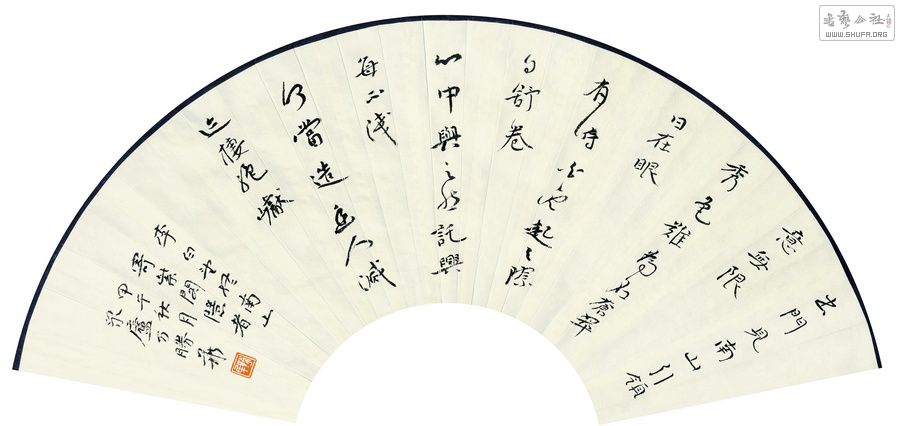 出門見南山引領
意無限
秀色難為名蒼翠
日在眼
有時白雲起天際
自舒卷
心中與之然託興
每不淺
何當造幽人滅
迹棲絕巘
李白望終南山
寄紫閣隱者
甲午秋月
廬方勝
書藝公社
WWW.SHUFA.ORG